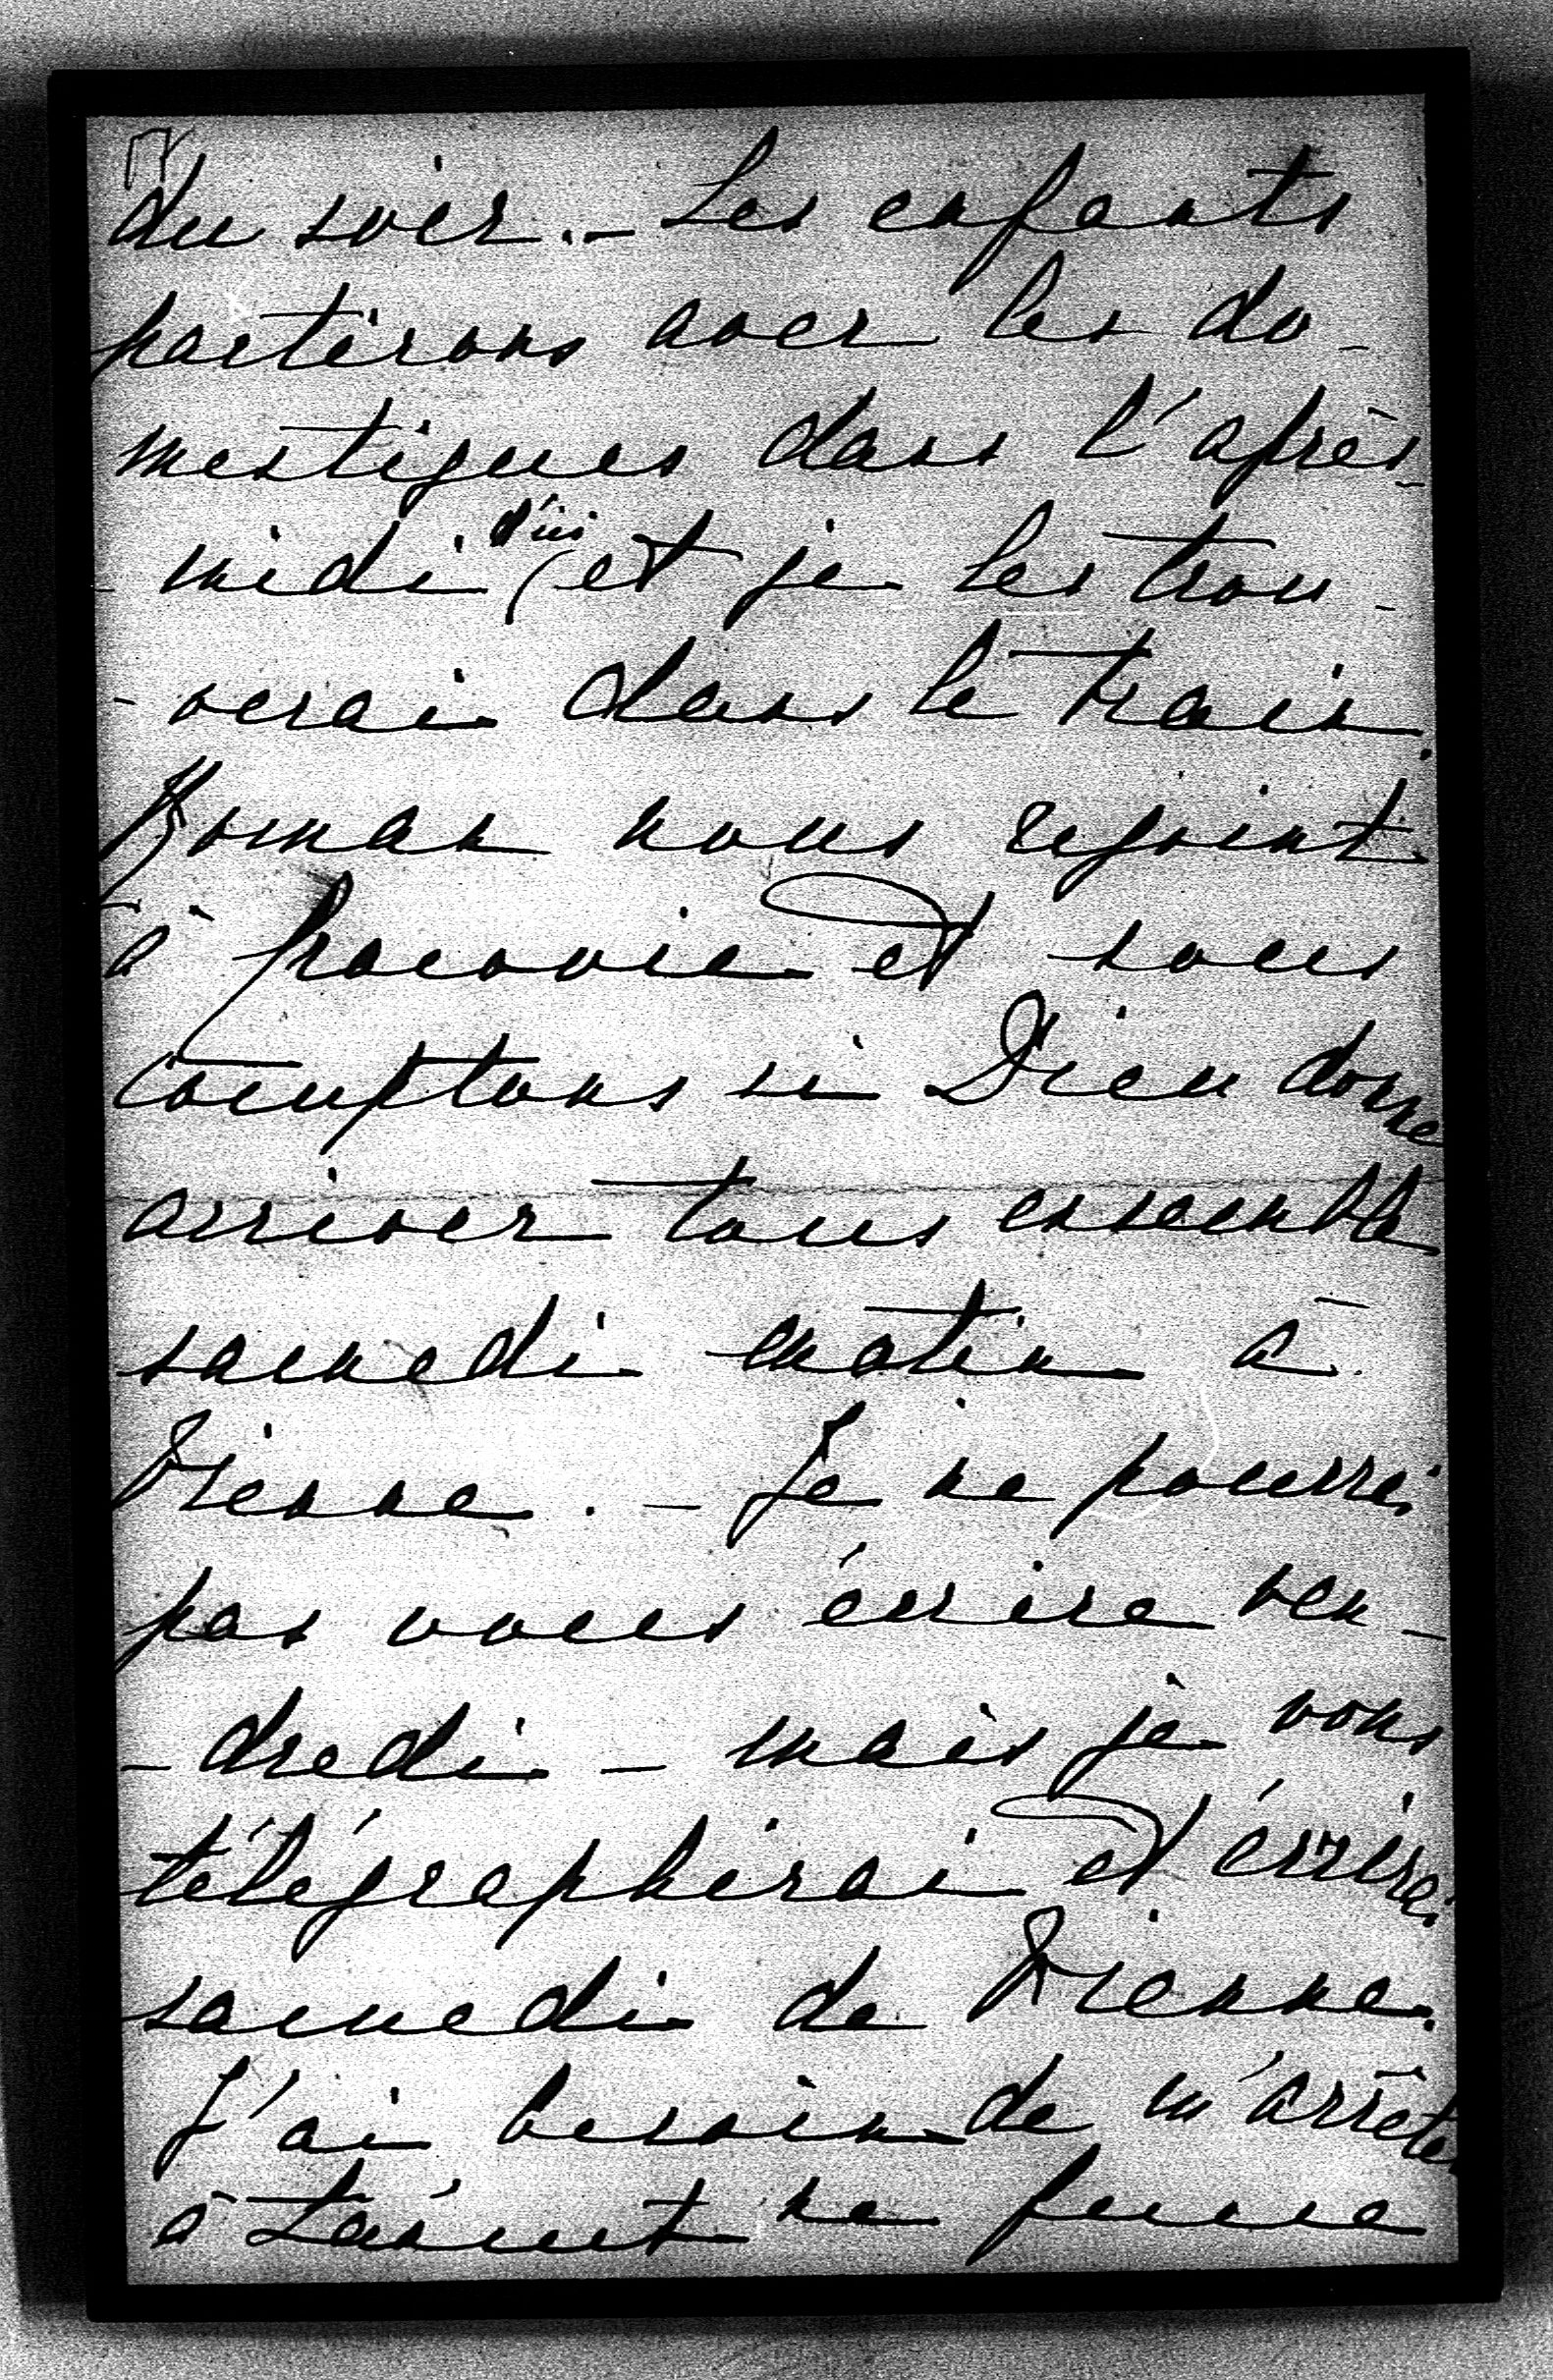 du soir. — Les enfants
partirons avec les do-
mestiques dans l'après-
- midi d'ici et je les trou-
- verai dans le train.
Roman nous rejoint
à Cracovie et nous
comptons si Dieu donne
arriver tous ensemble
samedi matin à
Vienne. — Je ne pourrai
pas vous écrire ven-
- dredi — mais je vous
télégraphierai et écrirai
samedi de Vienne.
J'ai besoin de m'arrêter
à Łańcut ne fusse